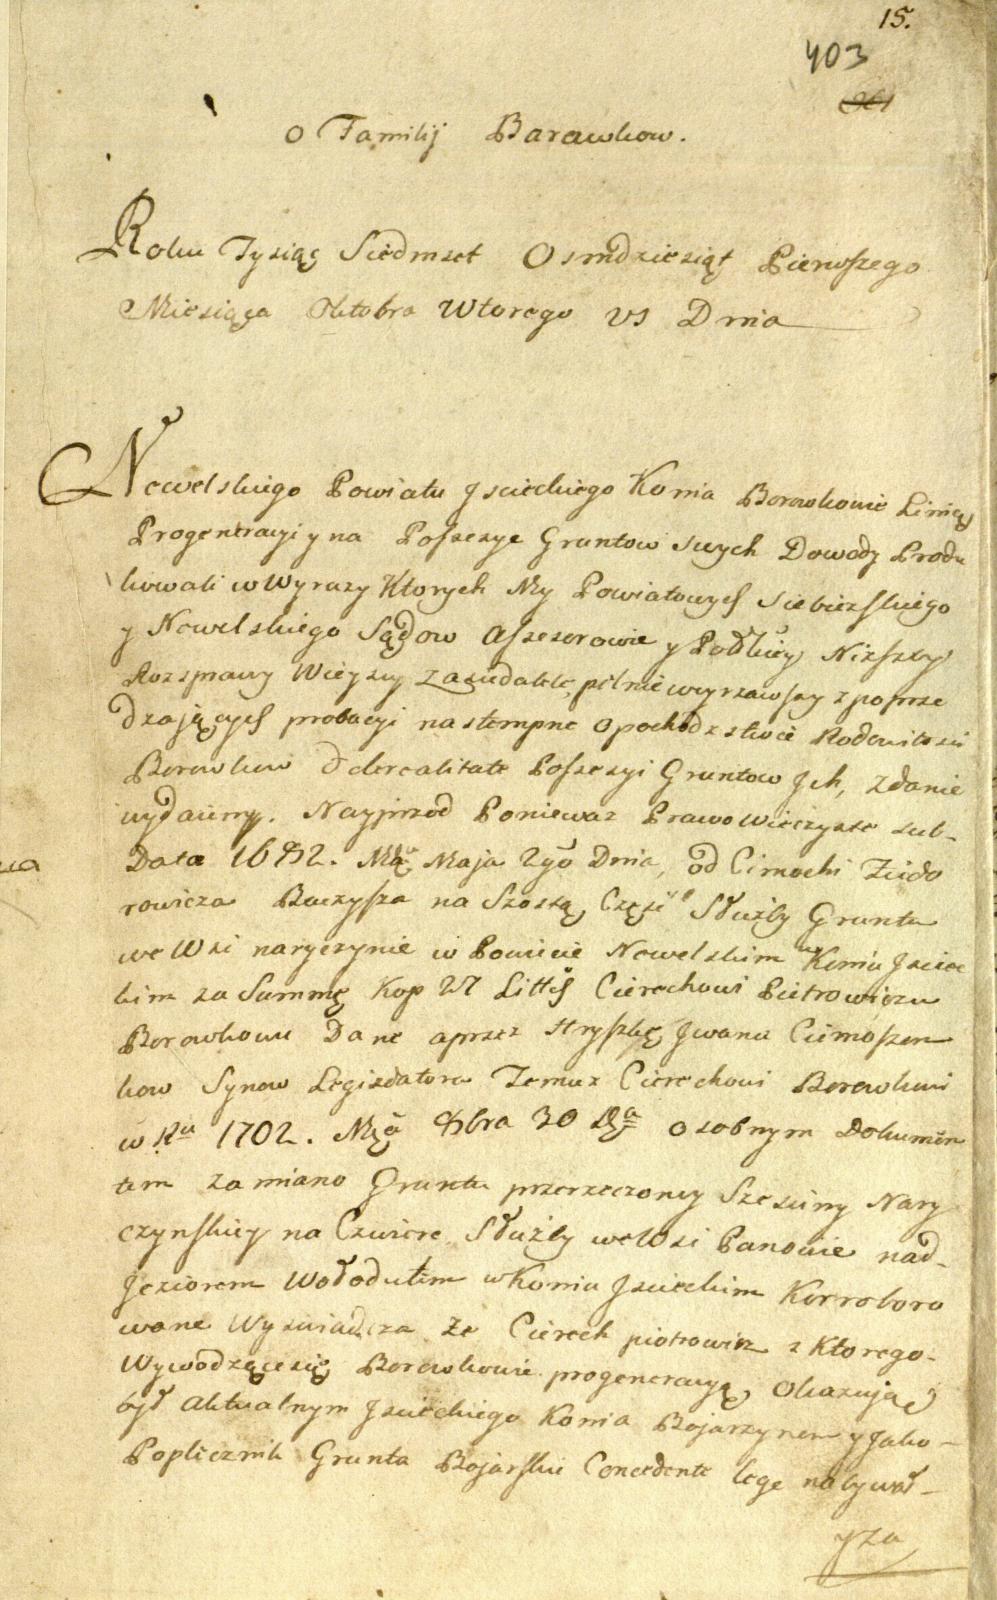 15.
403
O Familij Barawkow.
Roku Tysiąc Siedmset Osmdziesiąt Pierwszego
Miesiąca Oktobra Wtorego VS Dnia
Newelskiego Powiatu Jsieckiego Konia Borowkowie Linię
Progeneracyi y na Possesye Gruntow swych Dowody Produ
kowali w Wyrazy Ktorych My Powiatowych Siebiezskiego
y Newelskiego Sądow Assesorowie y Niższey
Rozsprawy pilnie weyrzawszy z poprze
dzających probacyi nastempne o pochodzstwie Rodowitosci
Borowkow de Possesyi Gruntow Jch, zdanie
wydaiemy. Nayprzod Poniewaz Prawo Wieczyste sub
Data 1682. Maja 2go Dnia, od Cimochi Zuido
rowicza na Szostą Częsć Służby Gruntu
we Wsi naryczynie w Powiecie Newelskim w Koniu Jsiec
kim za Summę Kop Littch Cierechowi Pietrowiczu
Borowkowu Dane aprzez Jwana Cimoszen
kow Synow Legizdatora Temuz Cierechowi Borowkowi
w Ru 1702. Mca 8bra 30 Da osobnym Dokumen
tem zamiano Gruntu przerzeczoney Szesciny Nary
czynskiey na Czwierc Służby we Wsi Panowie nad
Jeziorem Wołodutem w Koniu Jsieckim Korroboro
wane Wyswiadcza ze Cierech piotrowicz z Ktorego
Wywodzące się Borowkowie progeneracyą Okazują
był Aktualnym Jsieckiego Konia Bojarzynem y Jako
Poplecznik Grunta Bojarskie Concedente lege nabywał
y za